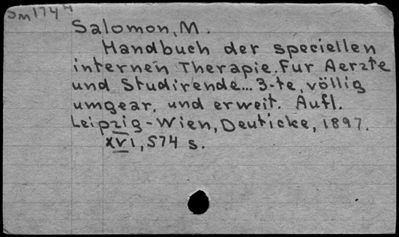 Sm1744
Salomon, M.
Handbuch der speciellen
internen Therapie. Fur Aerzte
und Studirende... 3-te, völlig
umgear. und erweit. Aufl.
Leipzig-Wien, Deuticke, 1897.
XVI, 574 s.